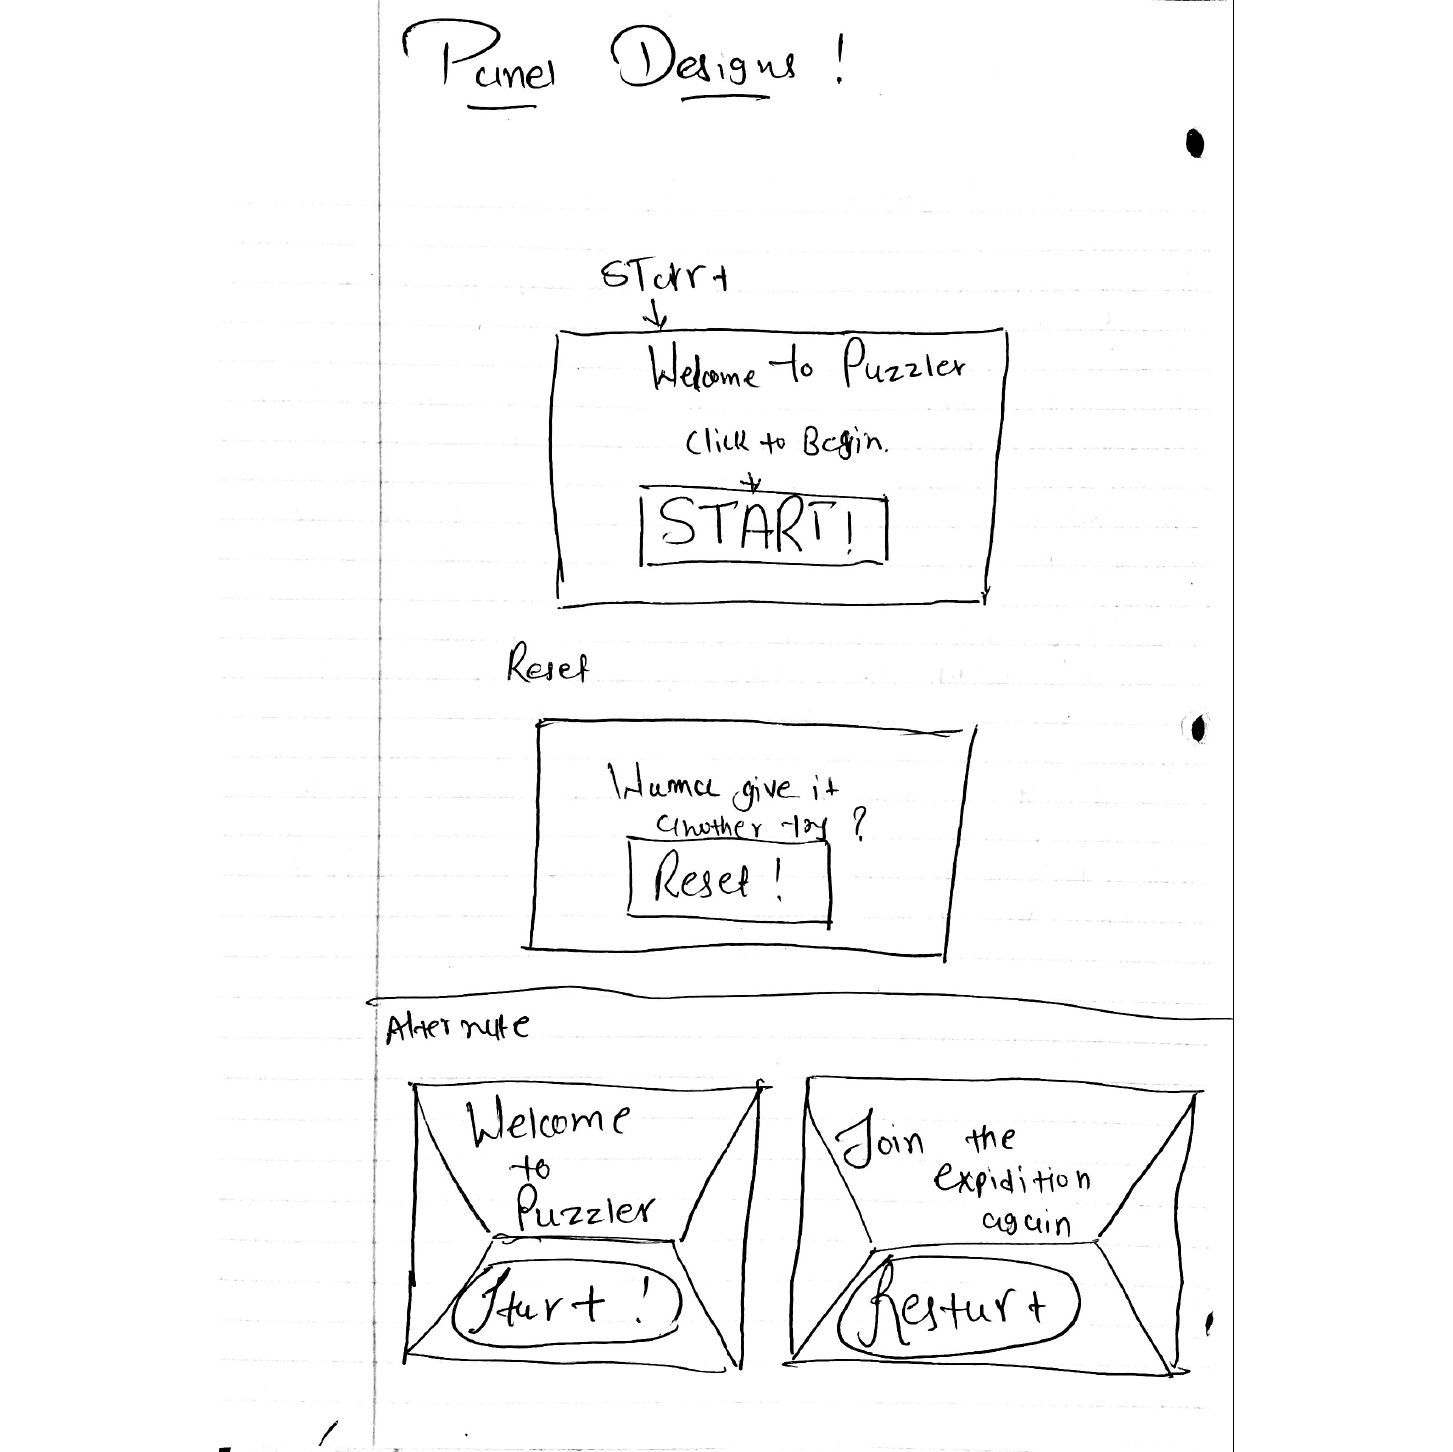 Panel Designs!
START
Welcome to Puzzler
Click to Begin.
START!
Reset
Wanna give it
another try?
Reset!
Alternate
Welcome
to
Puzzler
Start!
Join the
expidition
again
Restart